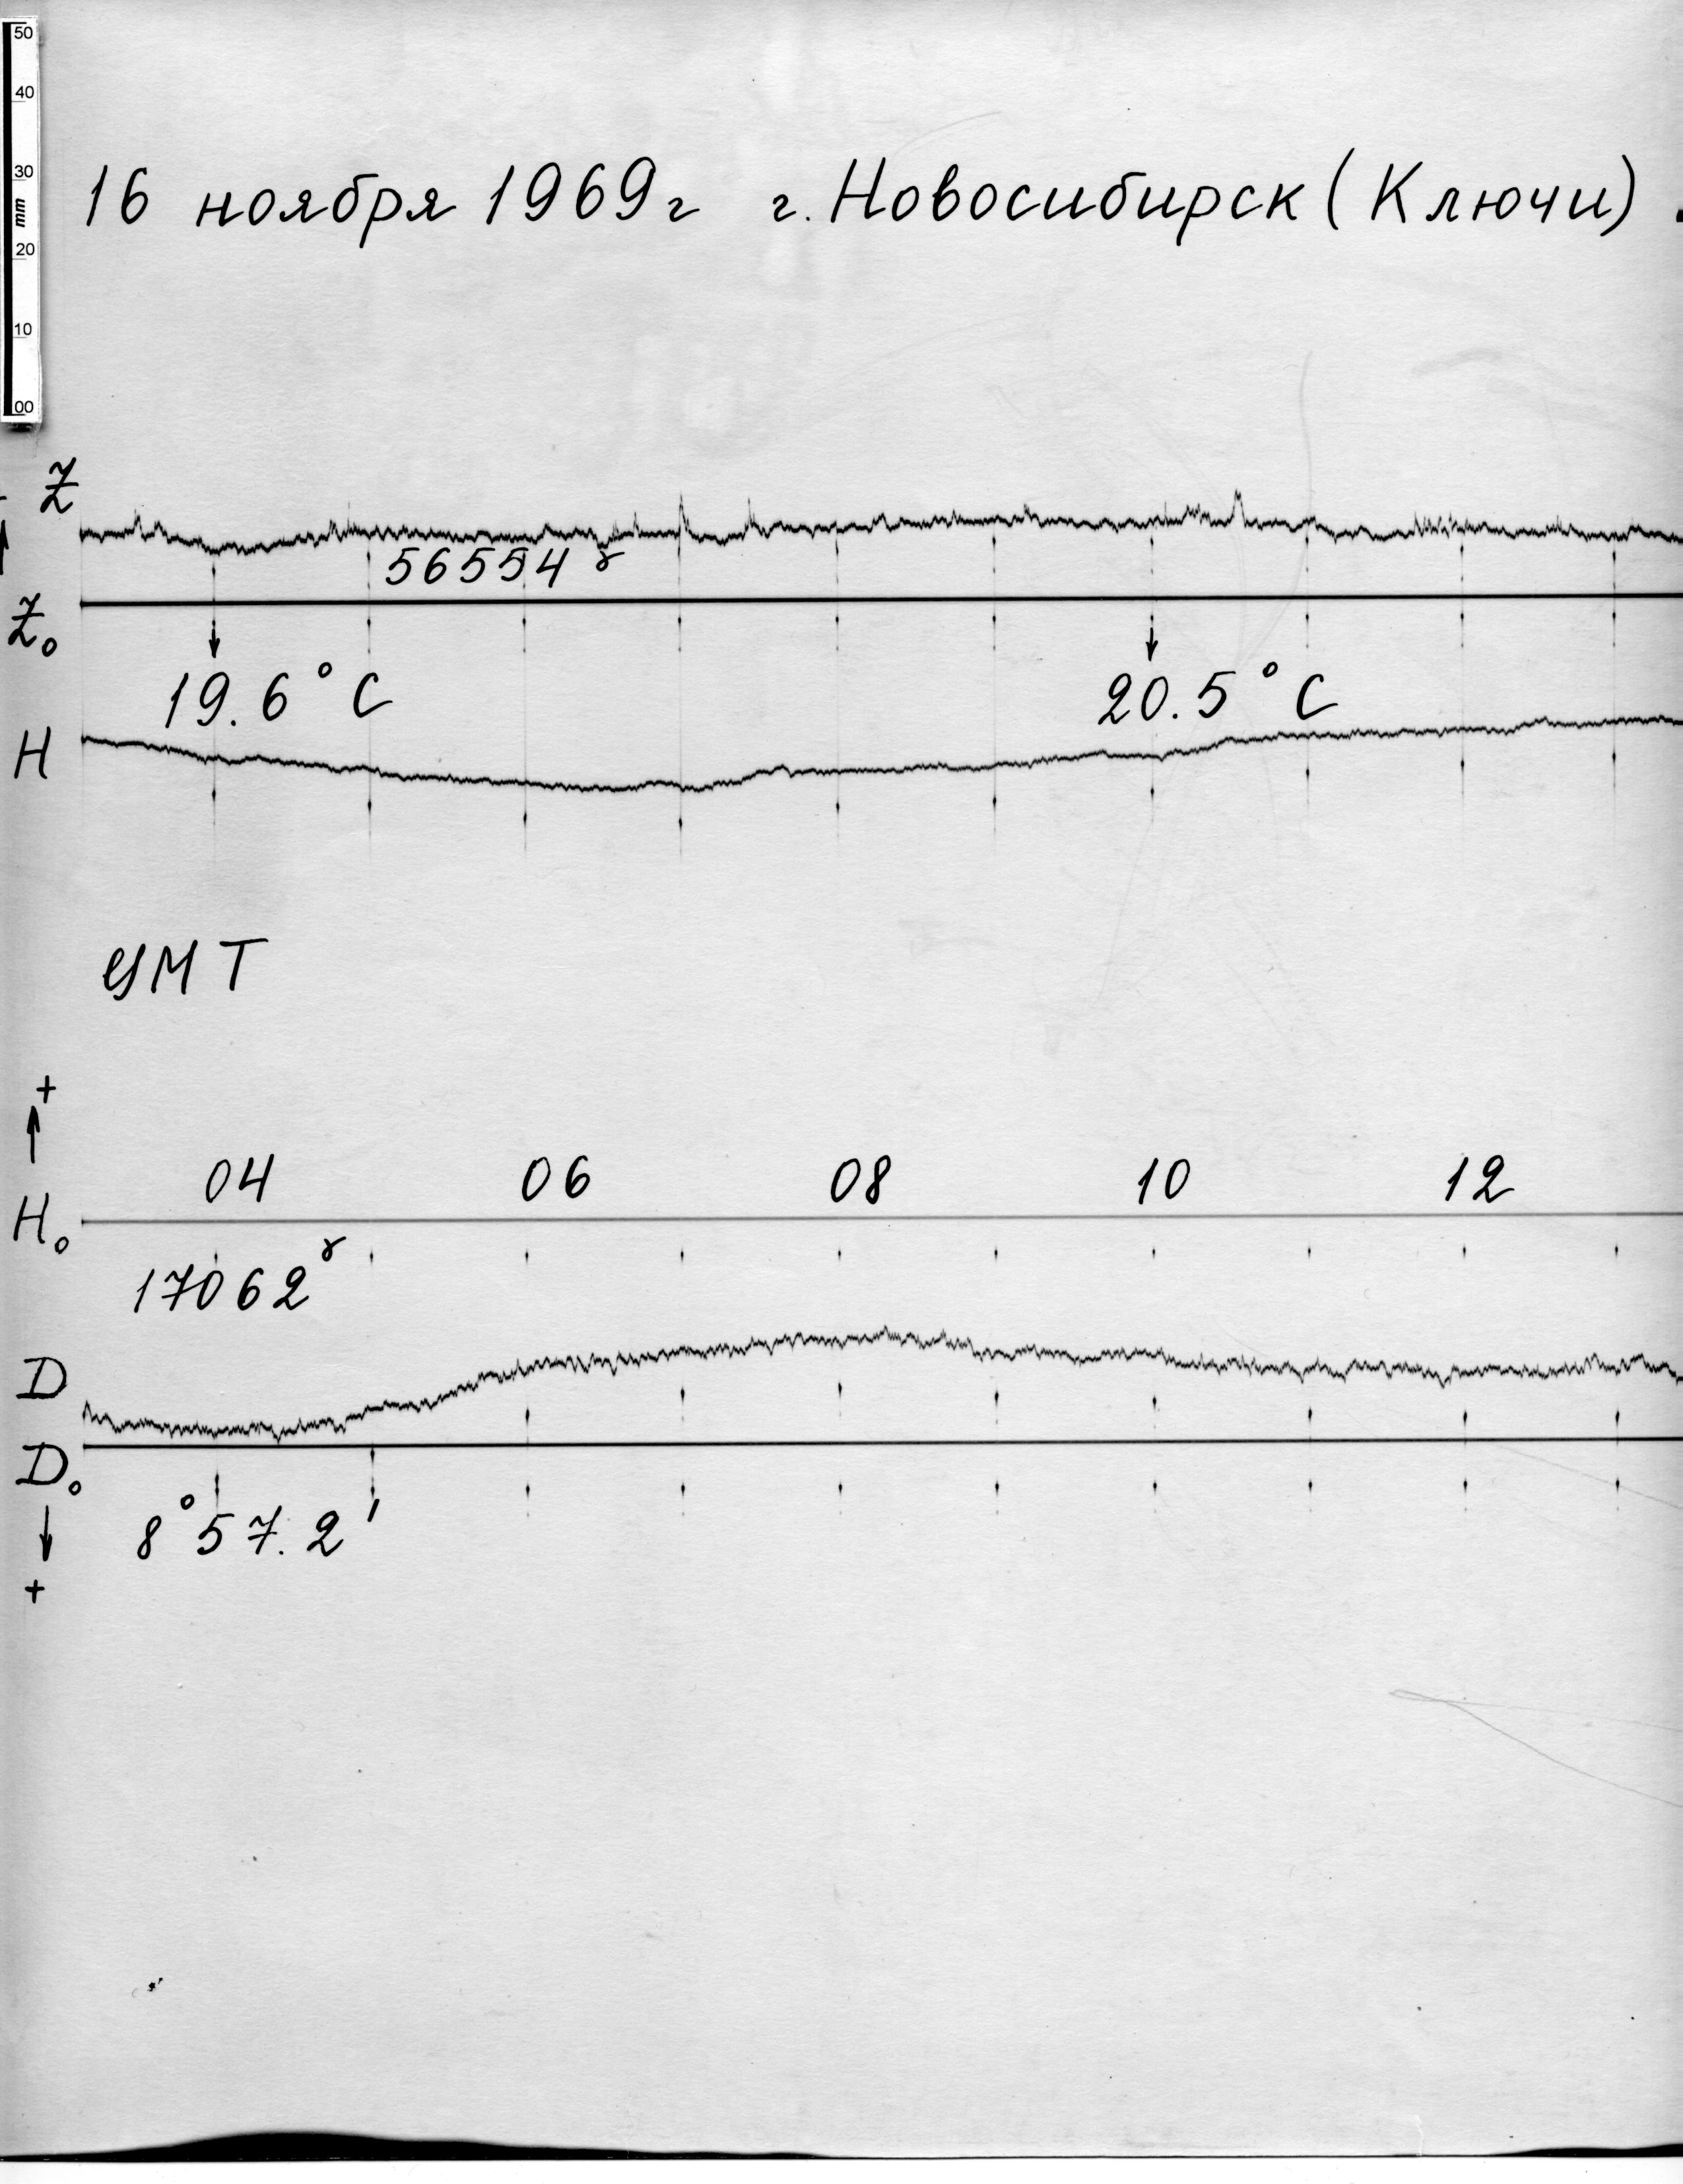 50
40
30
mm
20
10
00
16 ноября 1969г г. Новосибирск (Ключи).
Z
56554 γ
Z₀
19.6°C 20.5°C
H
УМТ
+
04 06 08 10 12
H₀
17062 γ
D
D₀
8°57.2'
+